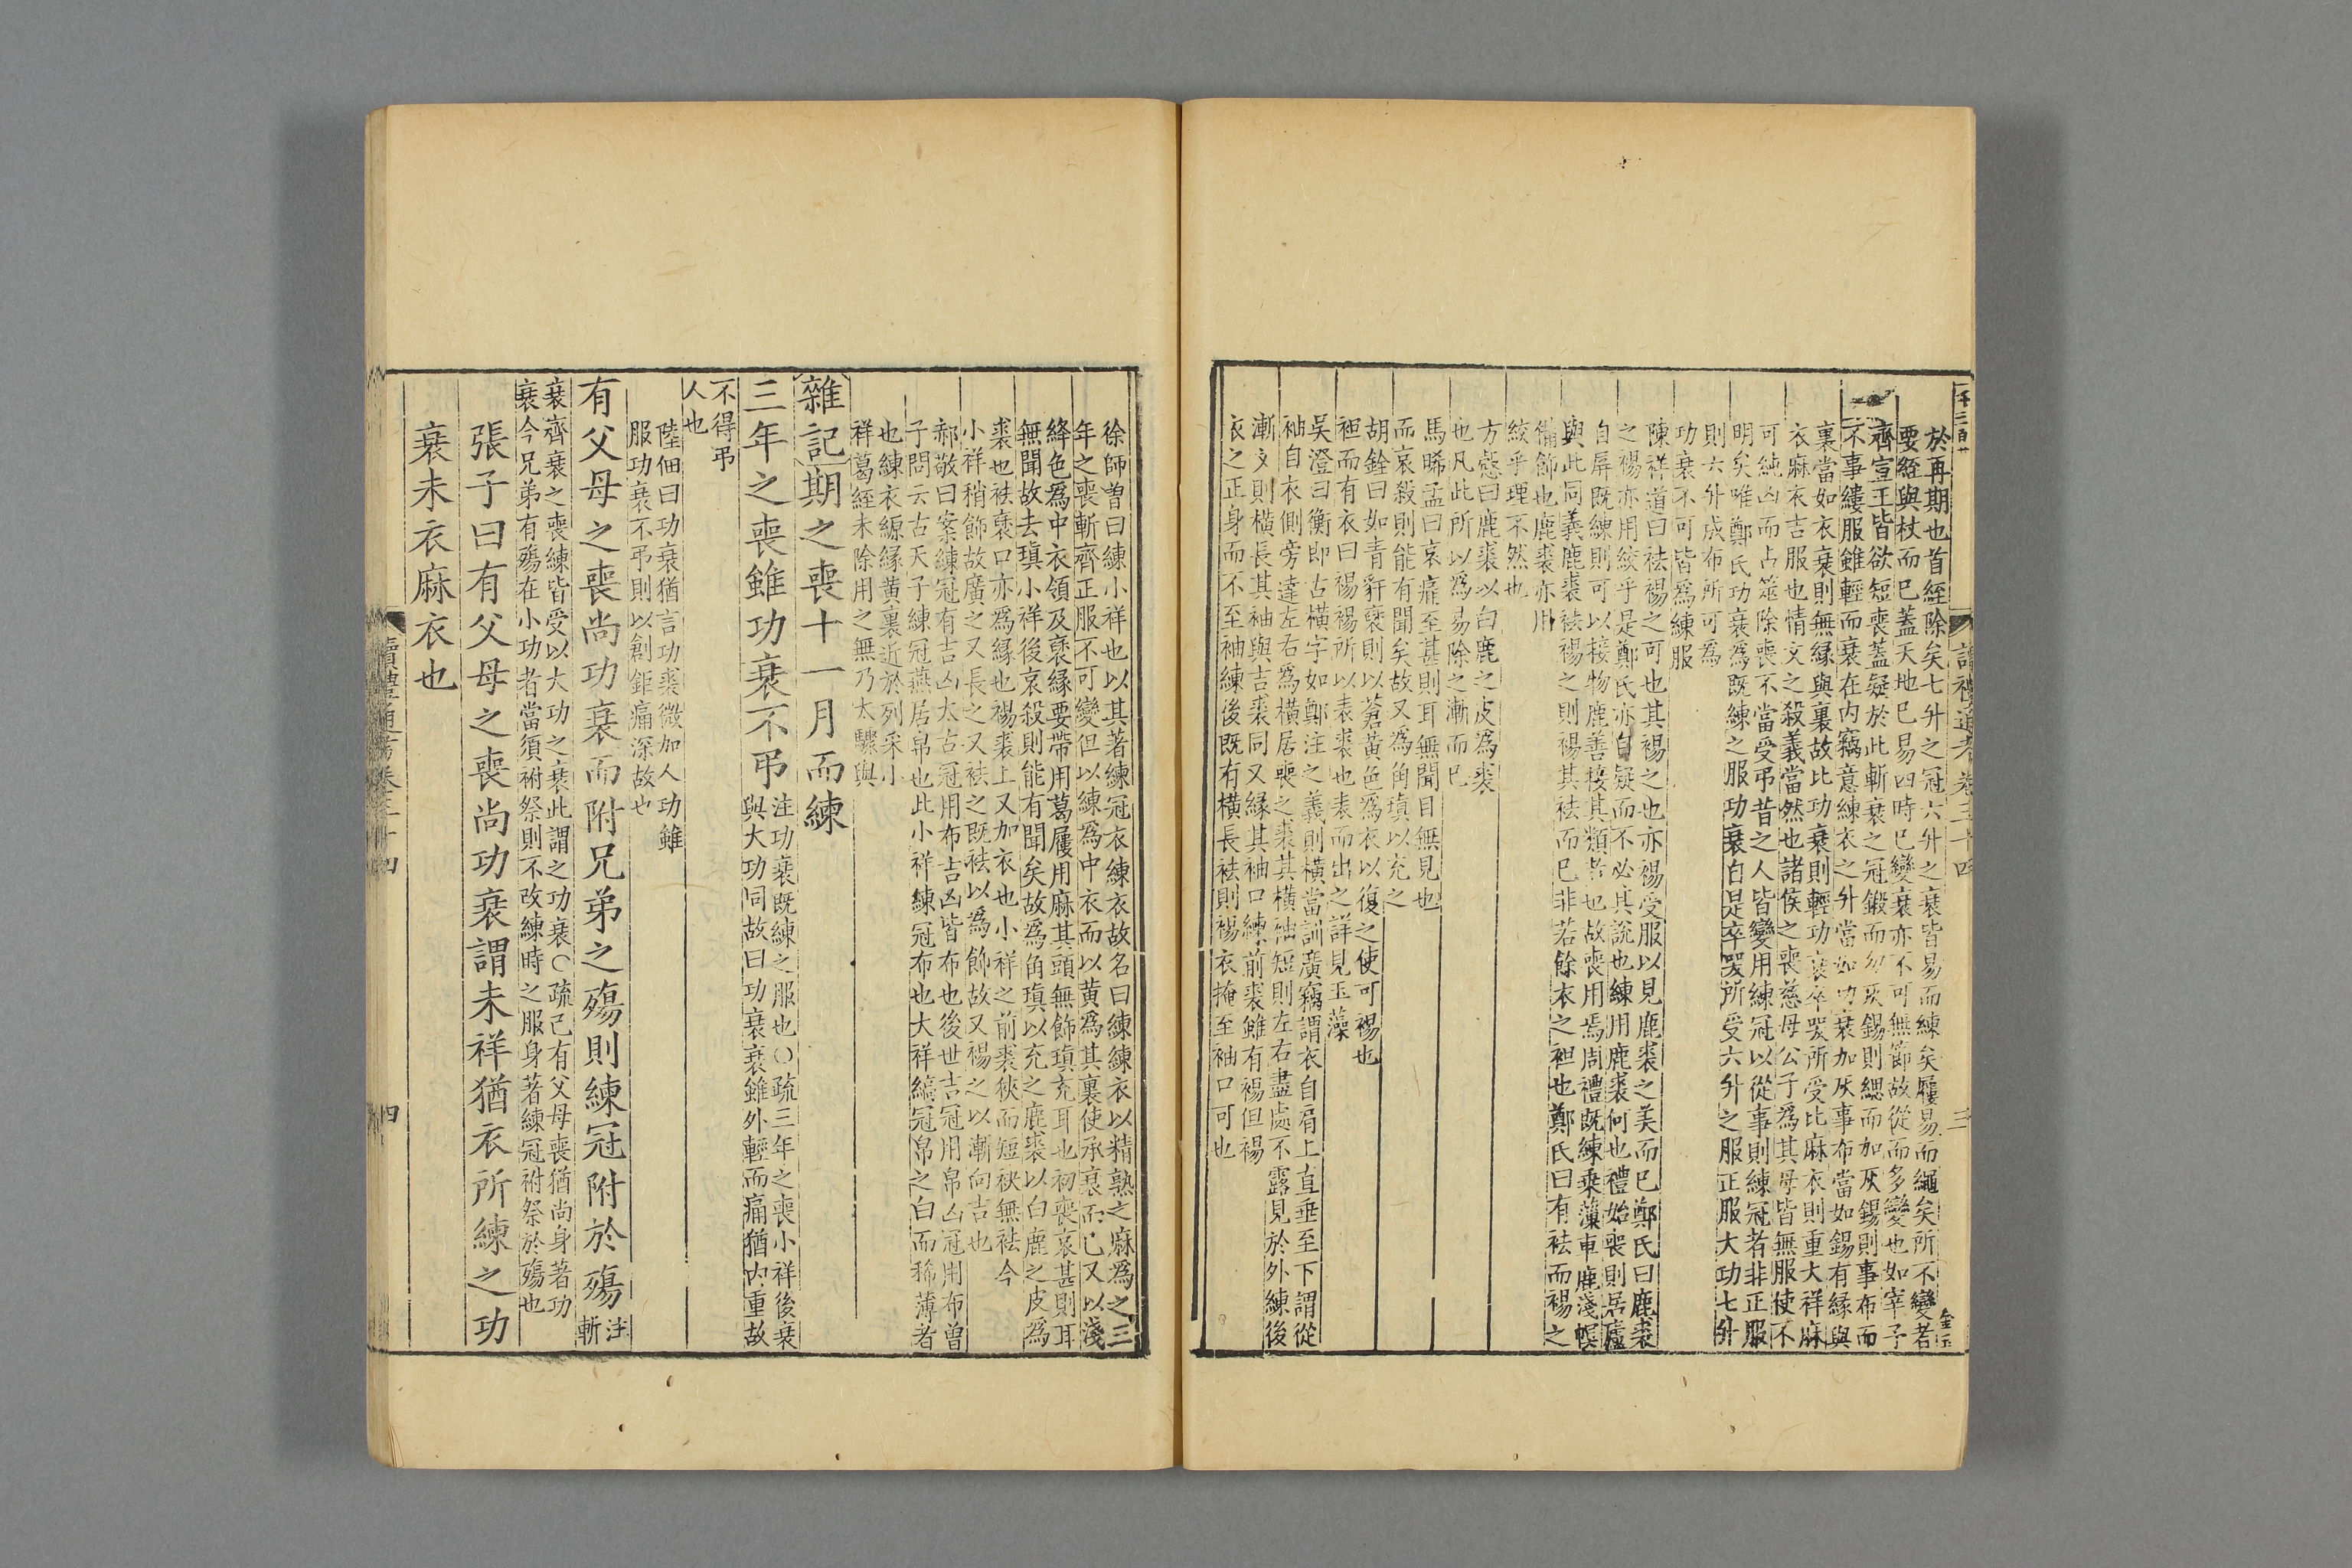 讀禮通考卷三十四
三
於再期也首絰除矣七升之冠六升之衰皆易而練矣屨易而繩矣所不變者
要絰與杖而已蓋天地已易四時已變衰亦不可無節故從而多變也如宰予
齊宣王皆欲短喪蓋疑於此斬衰之冠鍛而勿灰錫則緦而加灰錫則事布而
不事縷服雖輕而衰在內竊意練衣之升當如功衰加灰事布當如錫有緣與
裏當如衣衰則無緣與裏故比功衰則輕功衰卒哭所受比麻衣則重大祥麻
衣麻衣吉服也情文之殺義當然也諸侯之喪慈母公子為其母皆無服使不
可純凶而占筮除喪不當受弔昔之人皆變用練冠以從事則練冠者非正服
明矣唯鄭氏功衰為既練之服功衰自是卒哭所受六升之服正服大功七升
則六升成布所可為
功衰不可皆為練服
陳祥道曰袪裼之可也其裼之也亦裼受服以見鹿裘之美而已鄭氏曰鹿裘
之裼亦用絞乎是鄭氏亦自疑而不必其說也練用鹿裘何也禮始喪則居廬
自屏既練則可以接物鹿善接其類者也故喪用焉周禮既練乘藻車鹿淺幎
與此同義鹿裘袪裼之則裼其袪而已非若餘衣之袒也鄭氏曰有袪而裼之
備飾也鹿裘亦用
絞乎理不然也
方愨曰鹿裘以白鹿之皮為裘
也凡此所以為易除之漸而已
馬晞孟曰哀痛至甚則耳無聞目無見也
而哀殺則能有聞矣故又為角瑱以充之
胡銓曰如青豻褎則以蒼黃色為衣以復之使可裼也
袒而有衣曰裼裼所以表裘也表而出之詳見玉藻
吳澄曰衡即古橫字如鄭注之義則橫當訓廣竊謂衣自肩上直垂至下謂從
袖自衣側旁達左右為橫居喪之裘其橫袖短則左右盡處不露見於外練後
漸文則橫長其袖與吉裘同又緣其袖口練前裘雖有裼但裼
衣之正身而不至袖練後既有橫長袪則裼衣掩至袖口可也
徐師曾曰練小祥也以其著練冠衣練衣故名曰練練衣以精熟之麻為之三
年之喪斬齊正服不可變但以練為中衣而以黃為其裏使承衰而已又以淺
絳色為中衣領及褎緣要帶用葛屨用麻其頭無飾瑱充耳也初喪哀甚則耳
無聞故去瑱小祥後哀殺則能有聞矣故為角瑱以充之鹿裘以白鹿之皮為
裘也袪褎口亦為緣也裼裘上又加衣也小祥之前裘狹而短袂無袪今
小祥稍飾故廣之又長之又袪之既袪以為飾故又裼之以漸向吉也
郝敬曰案練冠有吉凶太古冠用布吉凶皆布也後世吉冠用帛凶冠用布曾
子問云古天子練冠燕居帛也此小祥練冠布也大祥縞冠帛之白而稀薄者
也練衣縓緣黃裏近於列采小
祥葛絰未除用之無乃太驟與
雜記期之喪十一月而練
三年之喪雖功衰不弔
注功衰既練之服也○疏三年之喪小祥後衰
與大功同故曰功衰衰雖外輕而痛猶內重故
不得弔
人也
陸佃曰功衰猶言功裘微加人功雖
服功衰不弔則以創鉅痛深故也
有父母之喪尚功衰而附兄弟之殤則練冠附於殤
注
斬
衰齊衰之喪練皆受以大功之衰此謂之功衰○疏己有父母喪猶尚身著功
衰今兄弟有殤在小功者當須祔祭則不改練時之服身著練冠祔祭於殤也
張子曰有父母之喪尚功衰謂未祥猶衣所練之功
衰未衣麻衣也
讀禮通考卷三十四
四